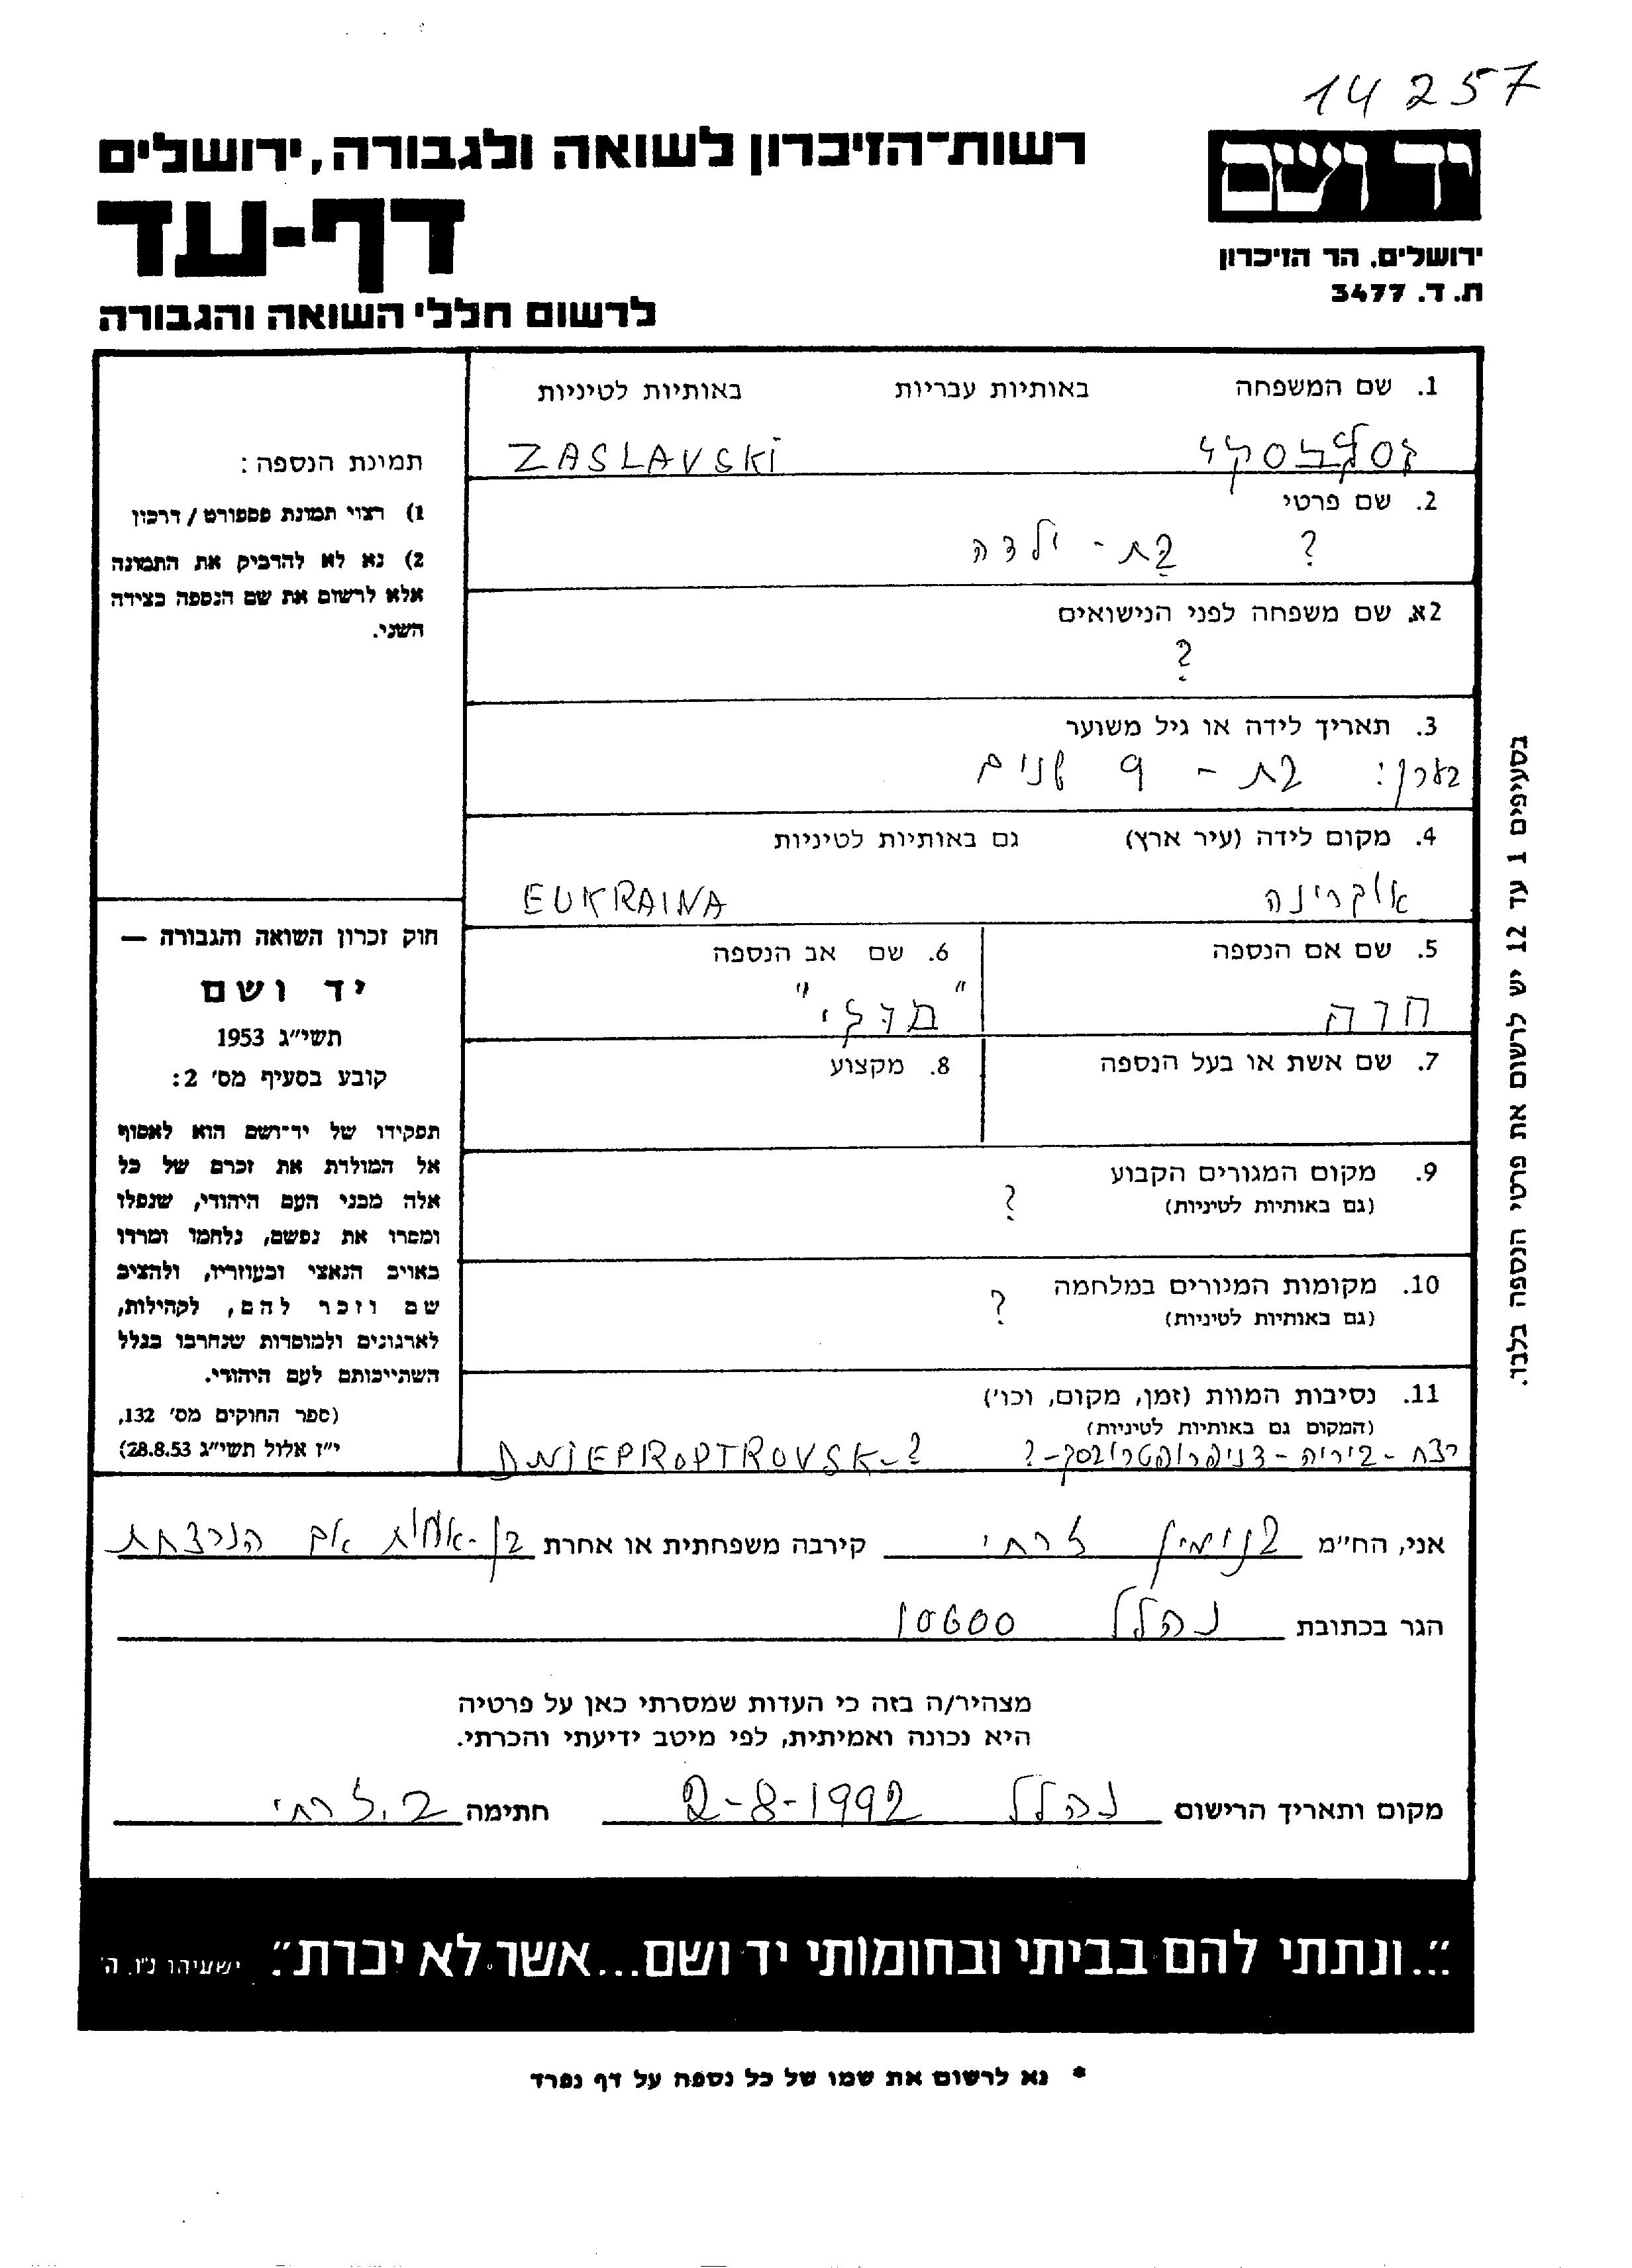 14257
רשות־הזיכרון לשואה ולגבורה, ירושלים
יד ושם
דף-עד
ירושלים, הר הזיכרון
ת. ד. 3477
לרשום חללי השואה והגבורה
1. שם המשפחה באותיות עבריות באותיות לטיניות
זסלבסקי ZASLAVSKI
2. שם פרטי
? בת - ילדה
2א. שם משפחה לפני הנישואים
?
3. תאריך לידה או גיל משוער
בערך: בת - 9 שנים
4. מקום לידה (עיר ארץ) גם באותיות לטיניות
אוקרינה EUKRAINA
5. שם אם הנספה
חוה
6. שם אב הנספה
7. שם אשת או בעל הנספה
8. מקצוע
9. מקום המגורים הקבוע
(גם באותיות לטיניות)
?
10. מקומות המגורים במלחמה
(גם באותיות לטיניות)
?
11. נסיבות המוות (זמן, מקום, וכו')
(המקום גם באותיות לטיניות)
רצח - ביריה - דניפרופטרובסק-? DNIEPROPTROVSK-?
תמונת הנספה:
1) רצוי תמונת פספורט / דרכון
2) נא לא להדביק את התמונה
אלא לרשום את שם הנספה בצידה
השני.
חוק זכרון השואה והגבורה —
יד ושם
תשי"ג 1953
קובע בסעיף מס' 2:
תפקידו של יד-ושם הוא לאסוף
אל המולדת את זכרם של כל
אלה מבני העם היהודי, שנפלו
ומסרו את נפשם, נלחמו ומרדו
באויב הנאצי ובעוזריו, ולהציב
שם וזכר להם, לקהילות,
לארגונים ולמוסדות שנחרבו בגלל
השתייכותם לעם היהודי.
(ספר החוקים מס' 132,
י"ז אלול תשי"ג 28.8.53)
בסעיפים 1 עד 12 יש לרשום את פרטי הנספה בלבד.
אני, הח"מ בנימין זרחי קירבה משפחתית או אחרת בן-אחות אם הנרצחת
הגר בכתובת נהלל 10600
מצהיר/ה בזה כי העדות שמסרתי כאן על פרטיה
היא נכונה ואמיתית, לפי מיטב ידיעתי והכרתי.
מקום ותאריך הרישום נהלל 2-8-1992 חתימה ב. זרחי
"...ונתתי להם בביתי ובחומותי יד ושם...אשר לא יכרת". ישעיהו נ"ו, ה'
* נא לרשום את שמו של כל נספה על דף נפרד